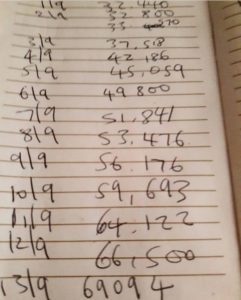 1/9 32.440
2/9 32 800
33
3/9 37.518
4/9 42,186
5/9 45,059
6/9 49 800
7/9 51.841
8/9 53.476
9/9 56.176
10/9 59,693
11/9 64.122
12/9 66,500
13/9 69094